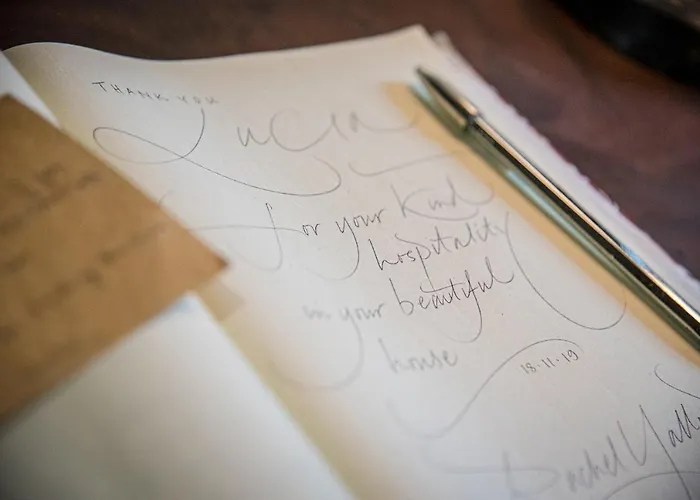 THANK YOU
Lucia
for your kind
hospitality
in your beautiful
house
18.11.19
Rachel